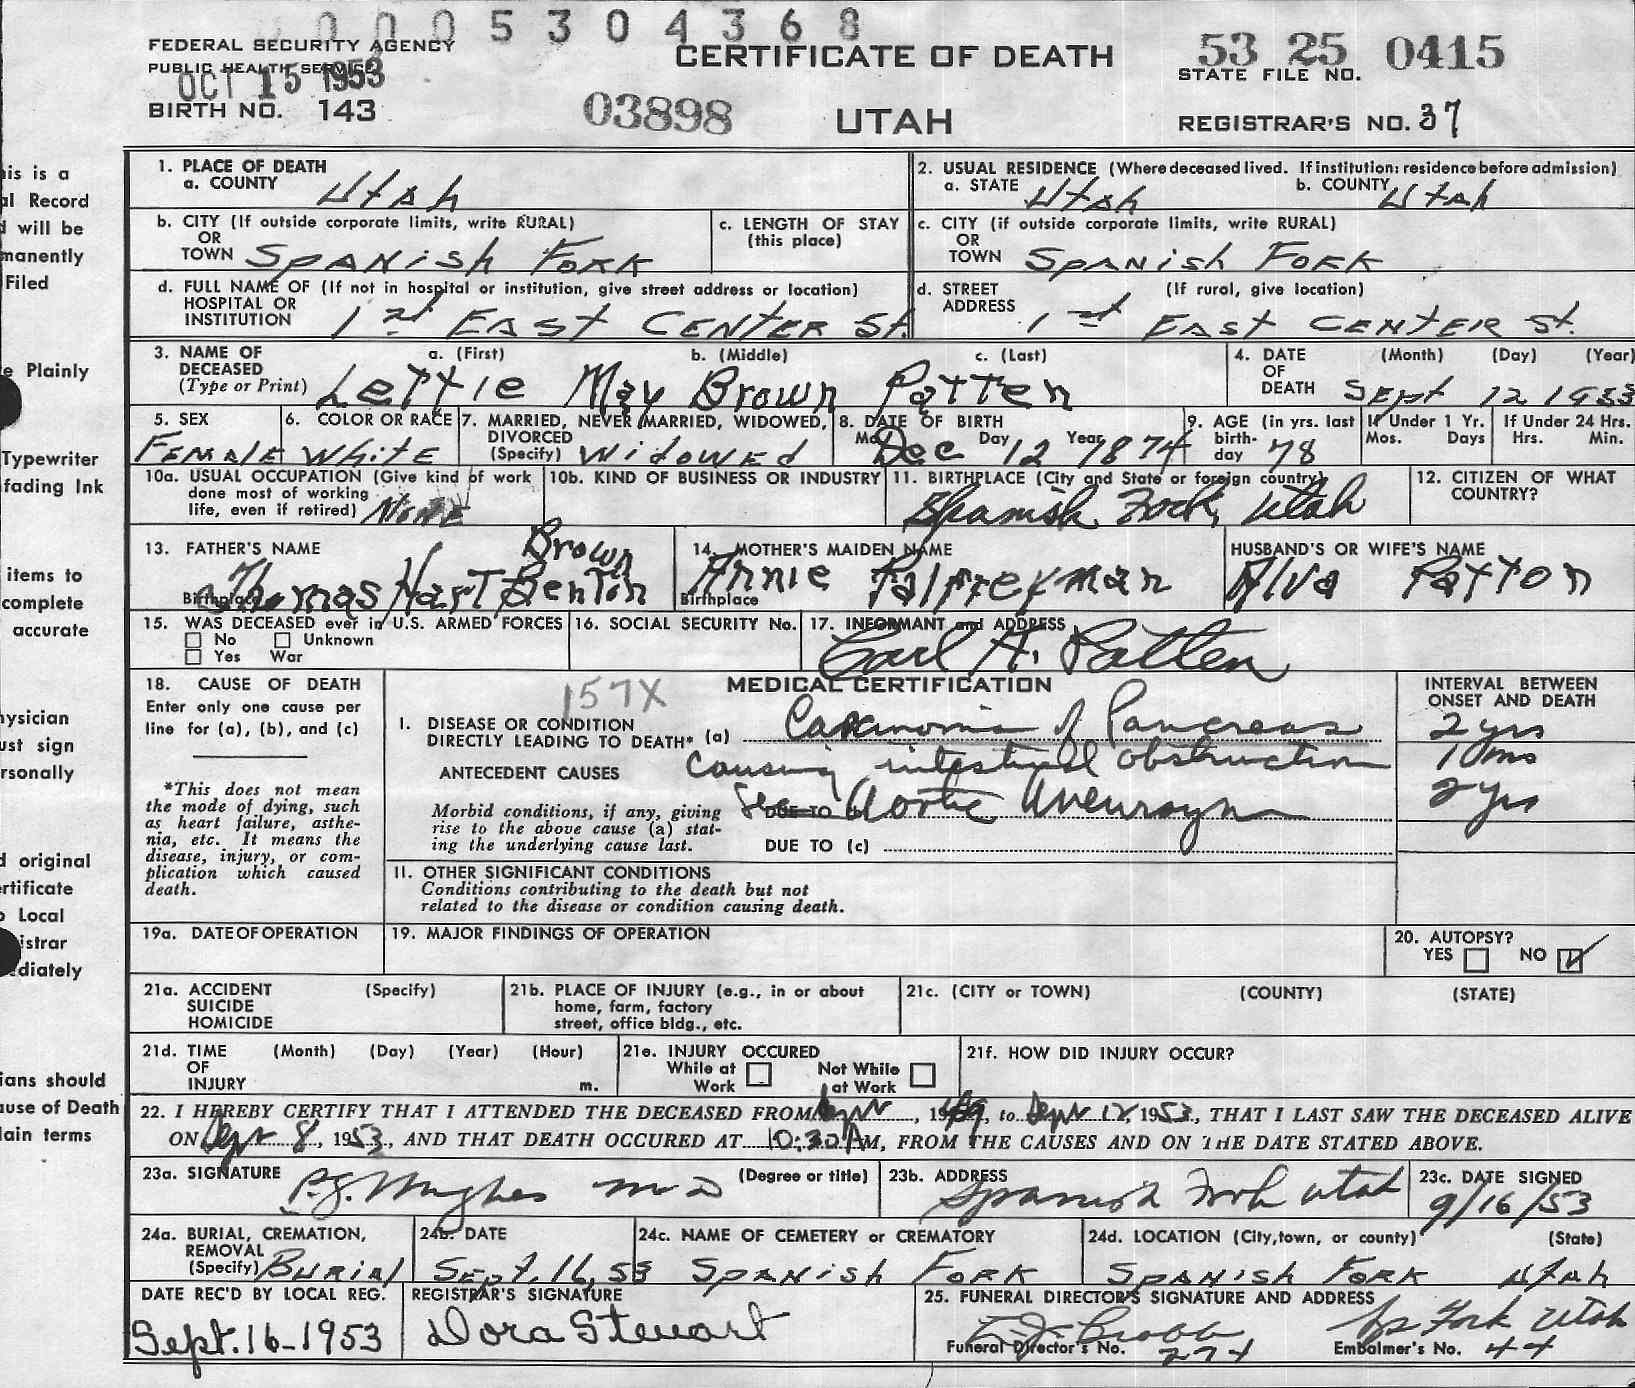 0005304368
FEDERAL SECURITY AGENCY
PUBLIC HEALTH SERVICE
OCT 15 1953
BIRTH NO. 143
CERTIFICATE OF DEATH
03898 UTAH
53 25 0415
STATE FILE NO.
REGISTRAR'S NO. 37
his is a
al Record
d will be
manently
Filed
e Plainly
Typewriter
fading Ink
items to
complete
accurate
hysician
ust sign
rsonally
d original
ertificate
o Local
istrar
ediately
ians should
ause of Death
lain terms
1. PLACE OF DEATH
a. COUNTY Utah
2. USUAL RESIDENCE (Where deceased lived. If institution: residence before admission)
a. STATE Utah b. COUNTY Utah
b. CITY (If outside corporate limits, write RURAL)
OR
TOWN Spanish Fork
c. LENGTH OF STAY
(this place)
c. CITY (if outside corporate limits, write RURAL)
OR
TOWN Spanish Fork
d. FULL NAME OF (If not in hospital or institution, give street address or location)
HOSPITAL OR
INSTITUTION 1st East Center St.
d. STREET (If rural, give location)
ADDRESS 1st East Center St.
3. NAME OF DECEASED (Type or Print)
a. (First) b. (Middle) c. (Last)
Lettie May Brown Patten
4. DATE OF DEATH (Month) (Day) (Year)
Sept 12 1953
5. SEX
Female
6. COLOR OR RACE
White
7. MARRIED, NEVER MARRIED, WIDOWED,
DIVORCED
(Specify) Widowed
8. DATE OF BIRTH
Mo. Dec Day 12 Year 1874
9. AGE (in yrs. last
birth-
day 78
If Under 1 Yr.
Mos. Days
If Under 24 Hrs.
Hrs. Min.
10a. USUAL OCCUPATION (Give kind of work
done most of working
life, even if retired) None
10b. KIND OF BUSINESS OR INDUSTRY
11. BIRTHPLACE (City and State or foreign country)
Spanish Fork, Utah
12. CITIZEN OF WHAT
COUNTRY?
13. FATHER'S NAME
Brown
Thomas Hart Benton
Birthplace
14. MOTHER'S MAIDEN NAME
Annie Palfreyman
Birthplace
HUSBAND'S OR WIFE'S NAME
Alva Patton
15. WAS DECEASED ever in U.S. ARMED FORCES
No Unknown
Yes War
16. SOCIAL SECURITY No.
17. INFORMANT and ADDRESS
Carl H. Patten
18. CAUSE OF DEATH
Enter only one cause per
line for (a), (b), and (c)
*This does not mean
the mode of dying, such
as heart failure, asthe-
nia, etc. It means the
disease, injury, or com-
plication which caused
death.
157X
MEDICAL CERTIFICATION
INTERVAL BETWEEN
ONSET AND DEATH
I. DISEASE OR CONDITION
DIRECTLY LEADING TO DEATH* (a) Carcinoma of Pancreas 2 yrs
ANTECEDENT CAUSES causing intestinal obstruction 10 mo
Morbid conditions, if any, giving
rise to the above cause (a) stat-
ing the underlying cause last.
DUE TO Aortic Aneurysm 2 yrs
DUE TO (c)
II. OTHER SIGNIFICANT CONDITIONS
Conditions contributing to the death but not
related to the disease or condition causing death.
19a. DATE OF OPERATION
19. MAJOR FINDINGS OF OPERATION
20. AUTOPSY?
YES NO
21a. ACCIDENT (Specify)
SUICIDE
HOMICIDE
21b. PLACE OF INJURY (e.g., in or about
home, farm, factory
street, office bldg., etc.
21c. (CITY or TOWN) (COUNTY) (STATE)
21d. TIME (Month) (Day) (Year) (Hour)
OF
INJURY m.
21e. INJURY OCCURED
While at Work Not While at Work
21f. HOW DID INJURY OCCUR?
22. I HEREBY CERTIFY THAT I ATTENDED THE DECEASED FROM , 1949, to Sept 12, 1953, THAT I LAST SAW THE DECEASED ALIVE
ON Sept 8, 1953, AND THAT DEATH OCCURED AT 10:30 AM, FROM THE CAUSES AND ON THE DATE STATED ABOVE.
23a. SIGNATURE (Degree or title)
P.J. Hughes MD
23b. ADDRESS
Spanish Fork Utah
23c. DATE SIGNED
9/16/53
24a. BURIAL, CREMATION,
REMOVAL
(Specify) Burial
24b. DATE
Sept. 16, 53
24c. NAME OF CEMETERY or CREMATORY
Spanish Fork
24d. LOCATION (City, town, or county) (State)
Spanish Fork Utah
DATE REC'D BY LOCAL REG.
Sept. 16-1953
REGISTRAR'S SIGNATURE
Dora Stewart
25. FUNERAL DIRECTOR'S SIGNATURE AND ADDRESS
Sp Fork Utah
Funeral Director's No. 274
Embalmer's No. 44